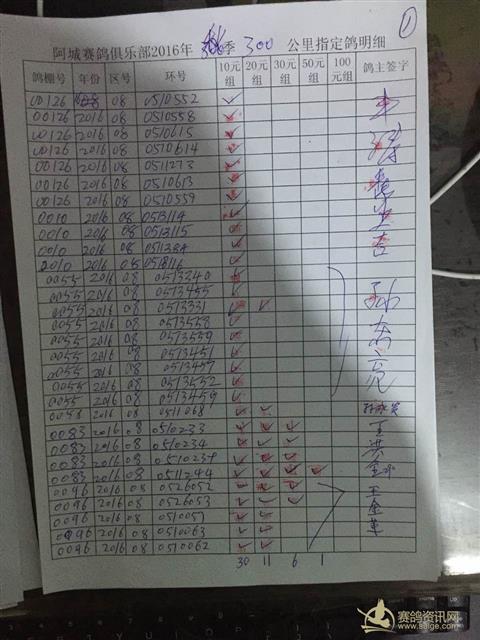 ①
阿城赛鸽俱乐部2016年 秋季 300 公里指定鸽明细
鸽棚号 年份 区号 环号 10元组 20元组 30元组 50元组 100元组 鸽主签字
00126 08 0510552 ✓
00126 2016 08 0510558 ✓
00126 2016 08 0510615 ✓
00126 2016 08 0510614 ✓
00126 2016 08 0511273 ✓
00126 2016 08 0510613 ✓
00126 2016 08 0510559 ✓
0010 2016 08 0513114 ✓
0010 2016 08 0513115 ✓
0010 2016 08 ✓
0010 2016 08 ✓
0055 2016 08 0573240 ✓
0055 2016 08 0573455 ✓
0055 2016 08 0573331 ✓ ✓
0055 2016 08 0573558 ✓
0055 2016 08 0573559 ✓
0055 2016 08 0573451 ✓
0055 2016 08 0573457 ✓
0055 2016 08 0573552 ✓
0055 2016 08 0573459 ✓
0056 2016 08 0511068 ✓ ✓
0083 2016 08 0510233 ✓ ✓ ✓ 王
0083 2016 08 0510234 ✓ ✓ ✓ 洪
0083 2016 08 0510237 ✓ ✓ ✓
0083 2016 08 0511244 ✓ ✓ ✓ ✓
0096 2016 08 0526052 ✓ ✓ ✓ 王
0096 2016 08 0526053 ✓ ✓ ✓ 金
0096 2016 08 0510057 ✓ ✓ 革
0096 2016 08 0510063 ✓ ✓
0096 2016 08 0510062 ✓ ✓
30 11 6 1
赛鸽资讯网
www.saige.com